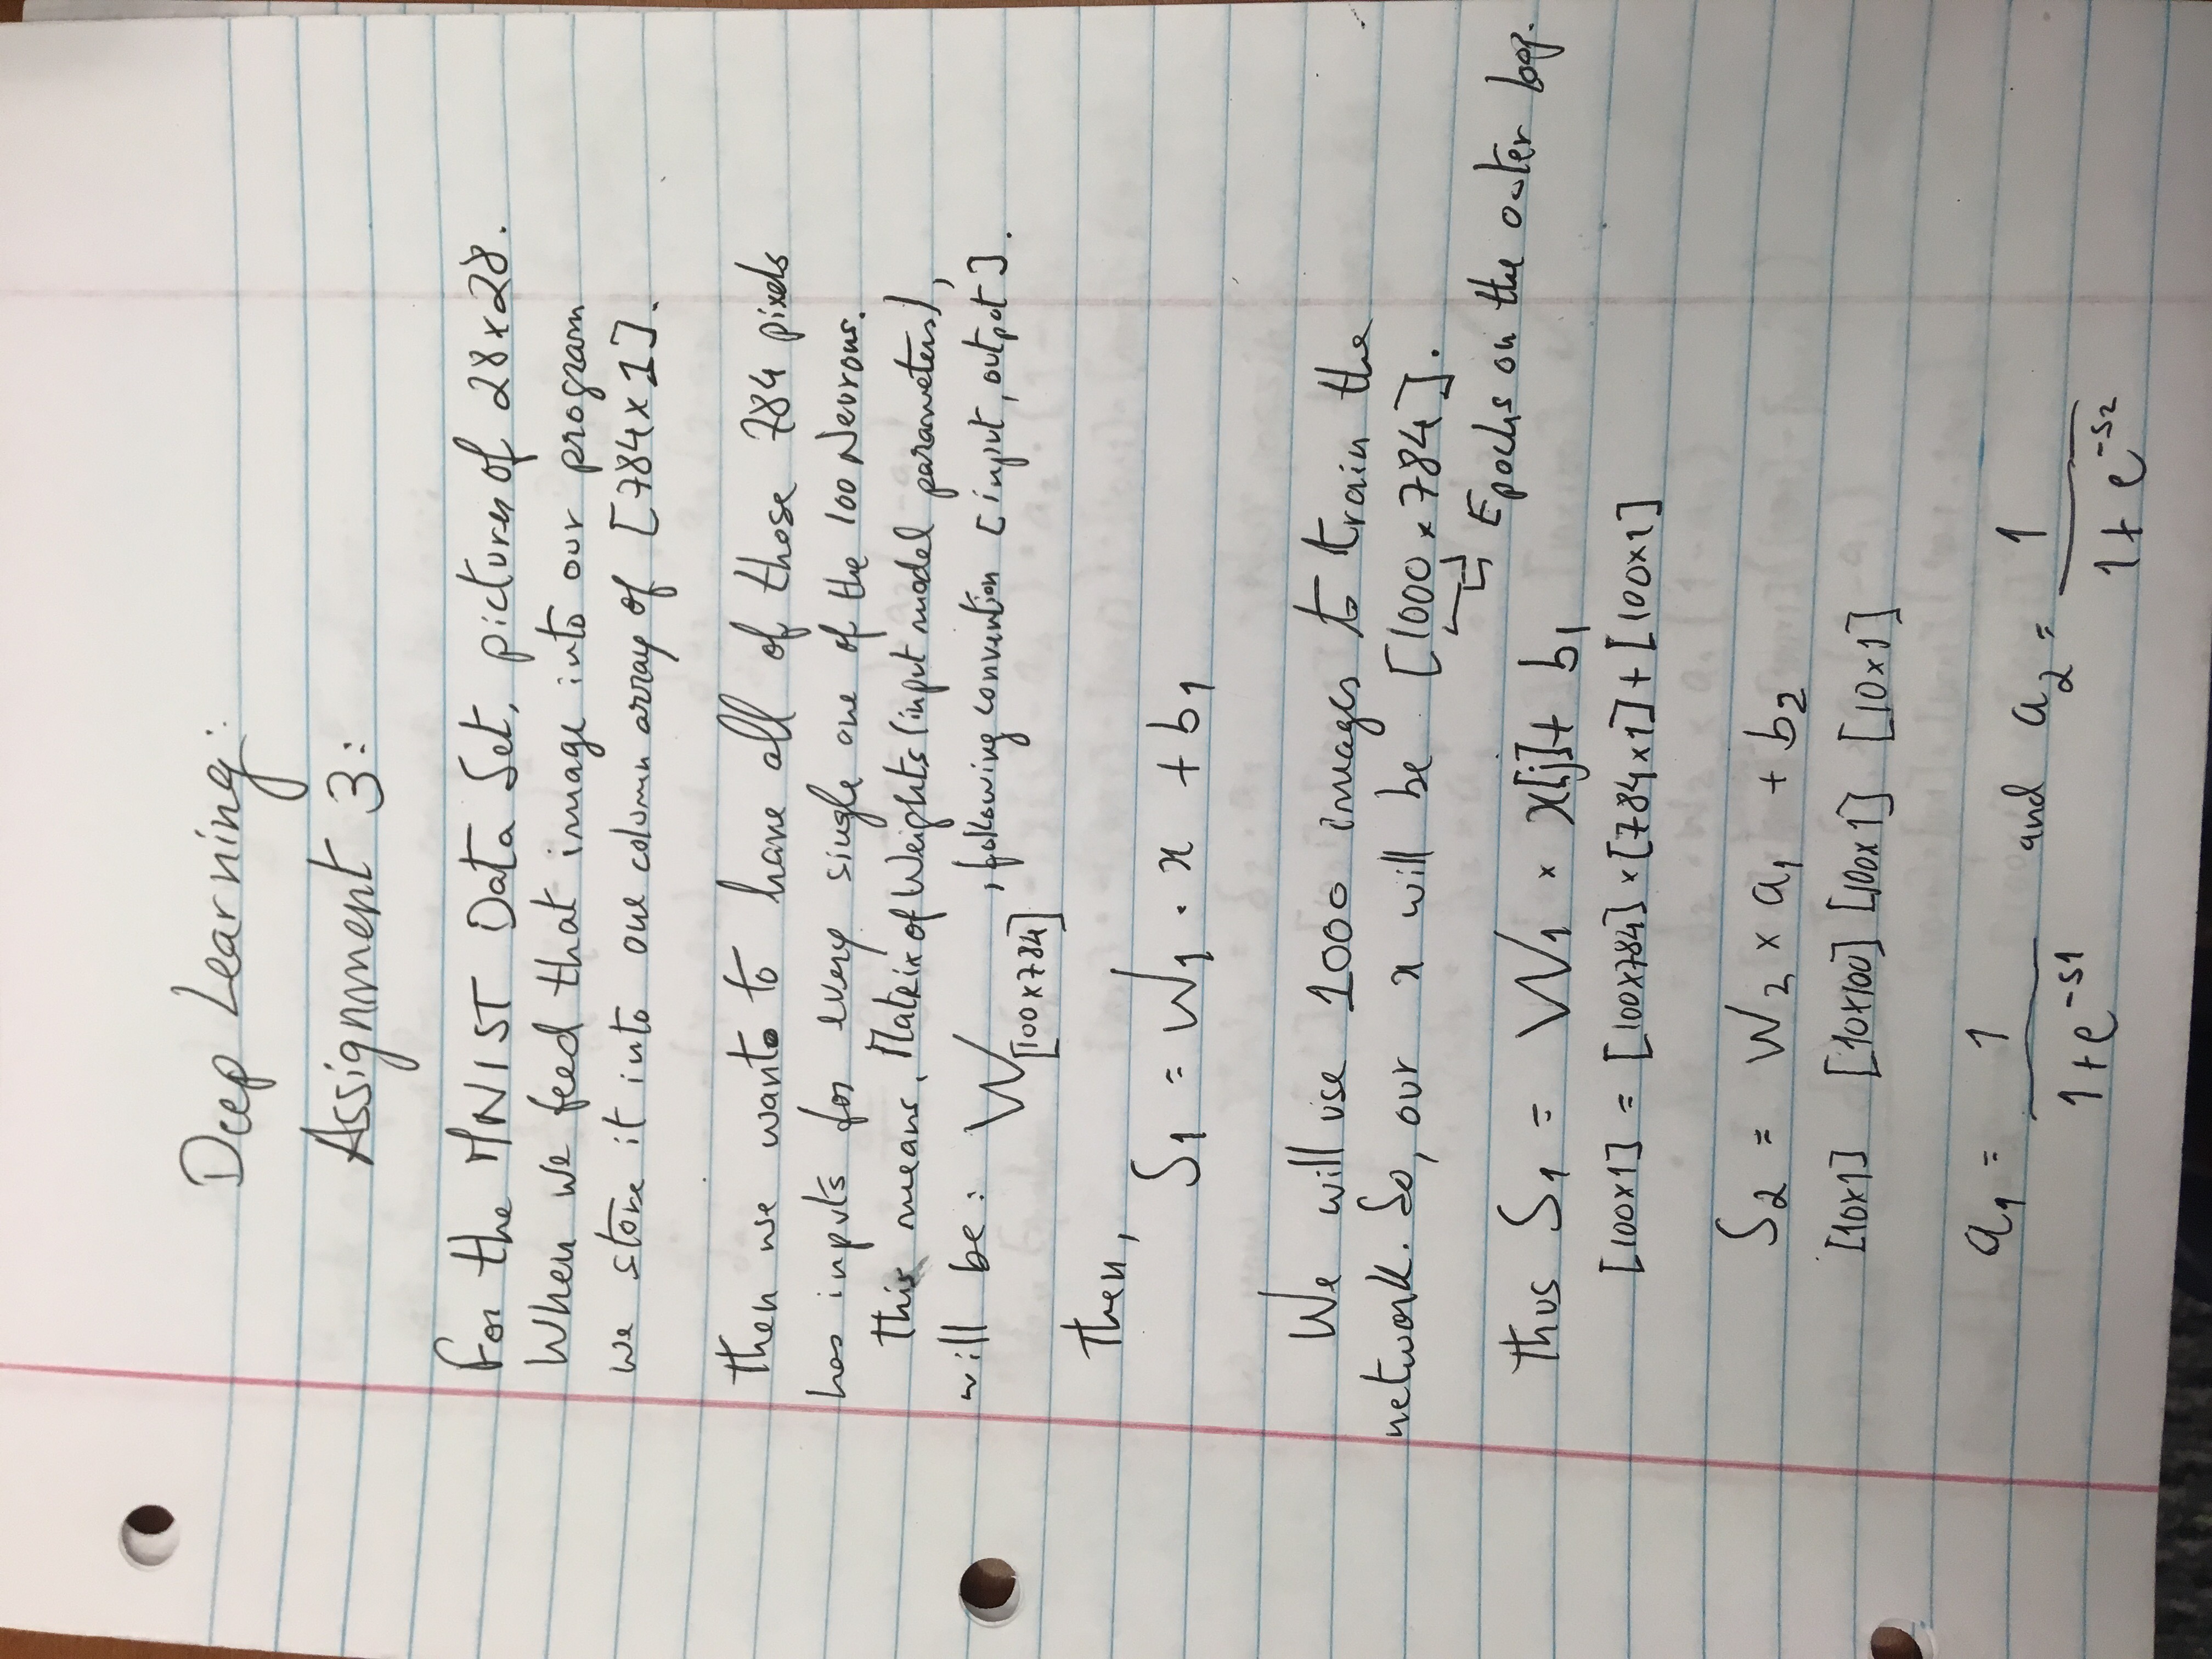 Deep Learning:
Assignment 3:
For the MNIST Data Set, pictures of 28x28.
When we feed that image into our program
we store it into one column array of [784x1].
Then we wants to have all of those 784 pixels
has inputs for every single one of the 100 Neurons.
This means, Matrix of Weights (input model parameters),
will be: W[100x784], following convention [input, output].
Then,
S1 = W1 . x + b1
We will use 1000 images to train the
network. So, our x will be [1000 x 784].
Epochs on the outer loop.
Thus S1 = W1 x x[j] + b1
[100x1] = [100x784] x [784x1] + [100x1]
S2 = W2 x a1 + b2
[10x1] [10x100] [100x1] [10x1]
a1 = 1 / 1+e^-s1 and a2 = 1 / 1+e^-s2